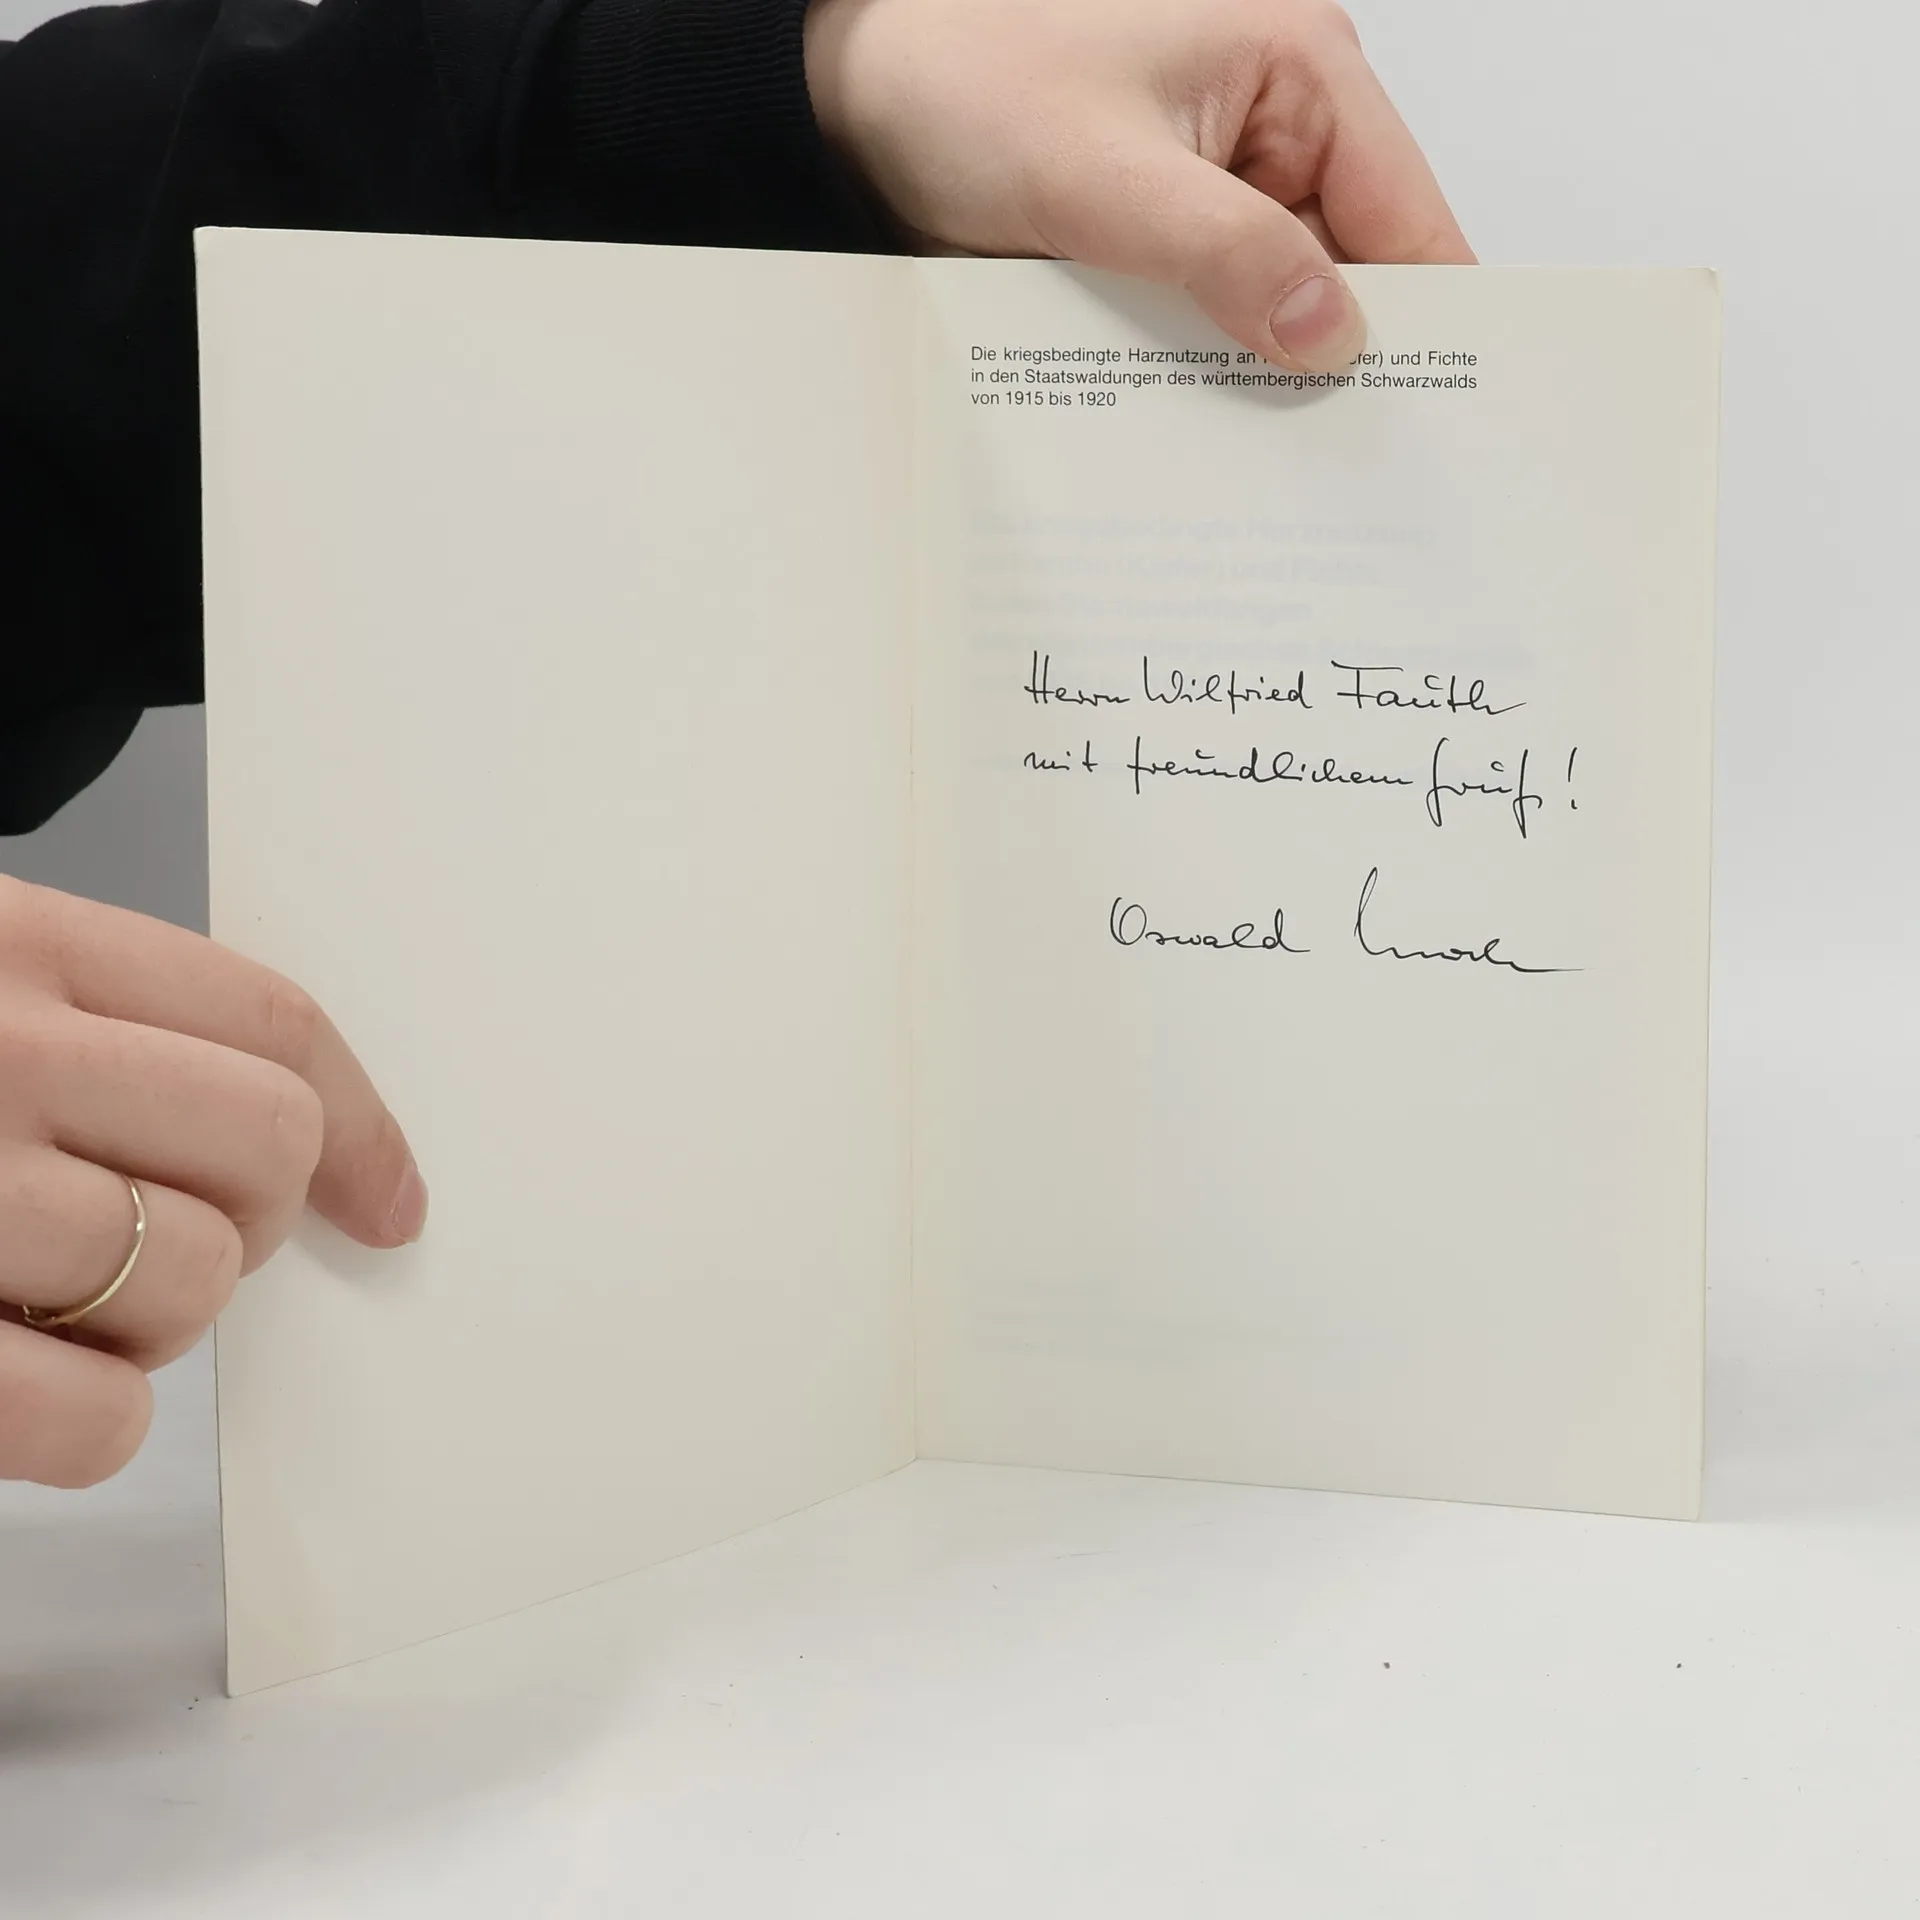 Die kriegsbedingte Harznutzung an und Fichte
in den Staatswaldungen des württembergischen Schwarzwalds
von 1915 bis 1920
Herrn Wilfried Fauth
mit freundlichem Gruß!
Oswald